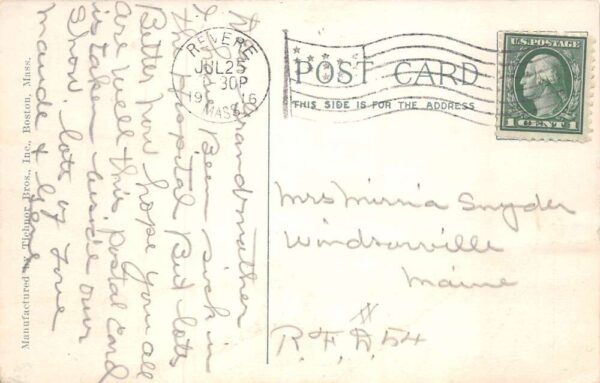 Dear Grandmother
I have Been sick in
the Hospital But lots
Better now hope you all
are well this postal card
is taken beside our
Show. lots of Love
Maude & Gene
Manufactured by Tichnor Bros., Inc., Boston, Mass.
REVERE
JUL 25
30P
19 16
MASS.
POST CARD
THIS SIDE IS FOR THE ADDRESS
U.S. POSTAGE
1 CENT 1
Mrs Mirria Snyder
Windsorville
Maine
R.F.D. 54